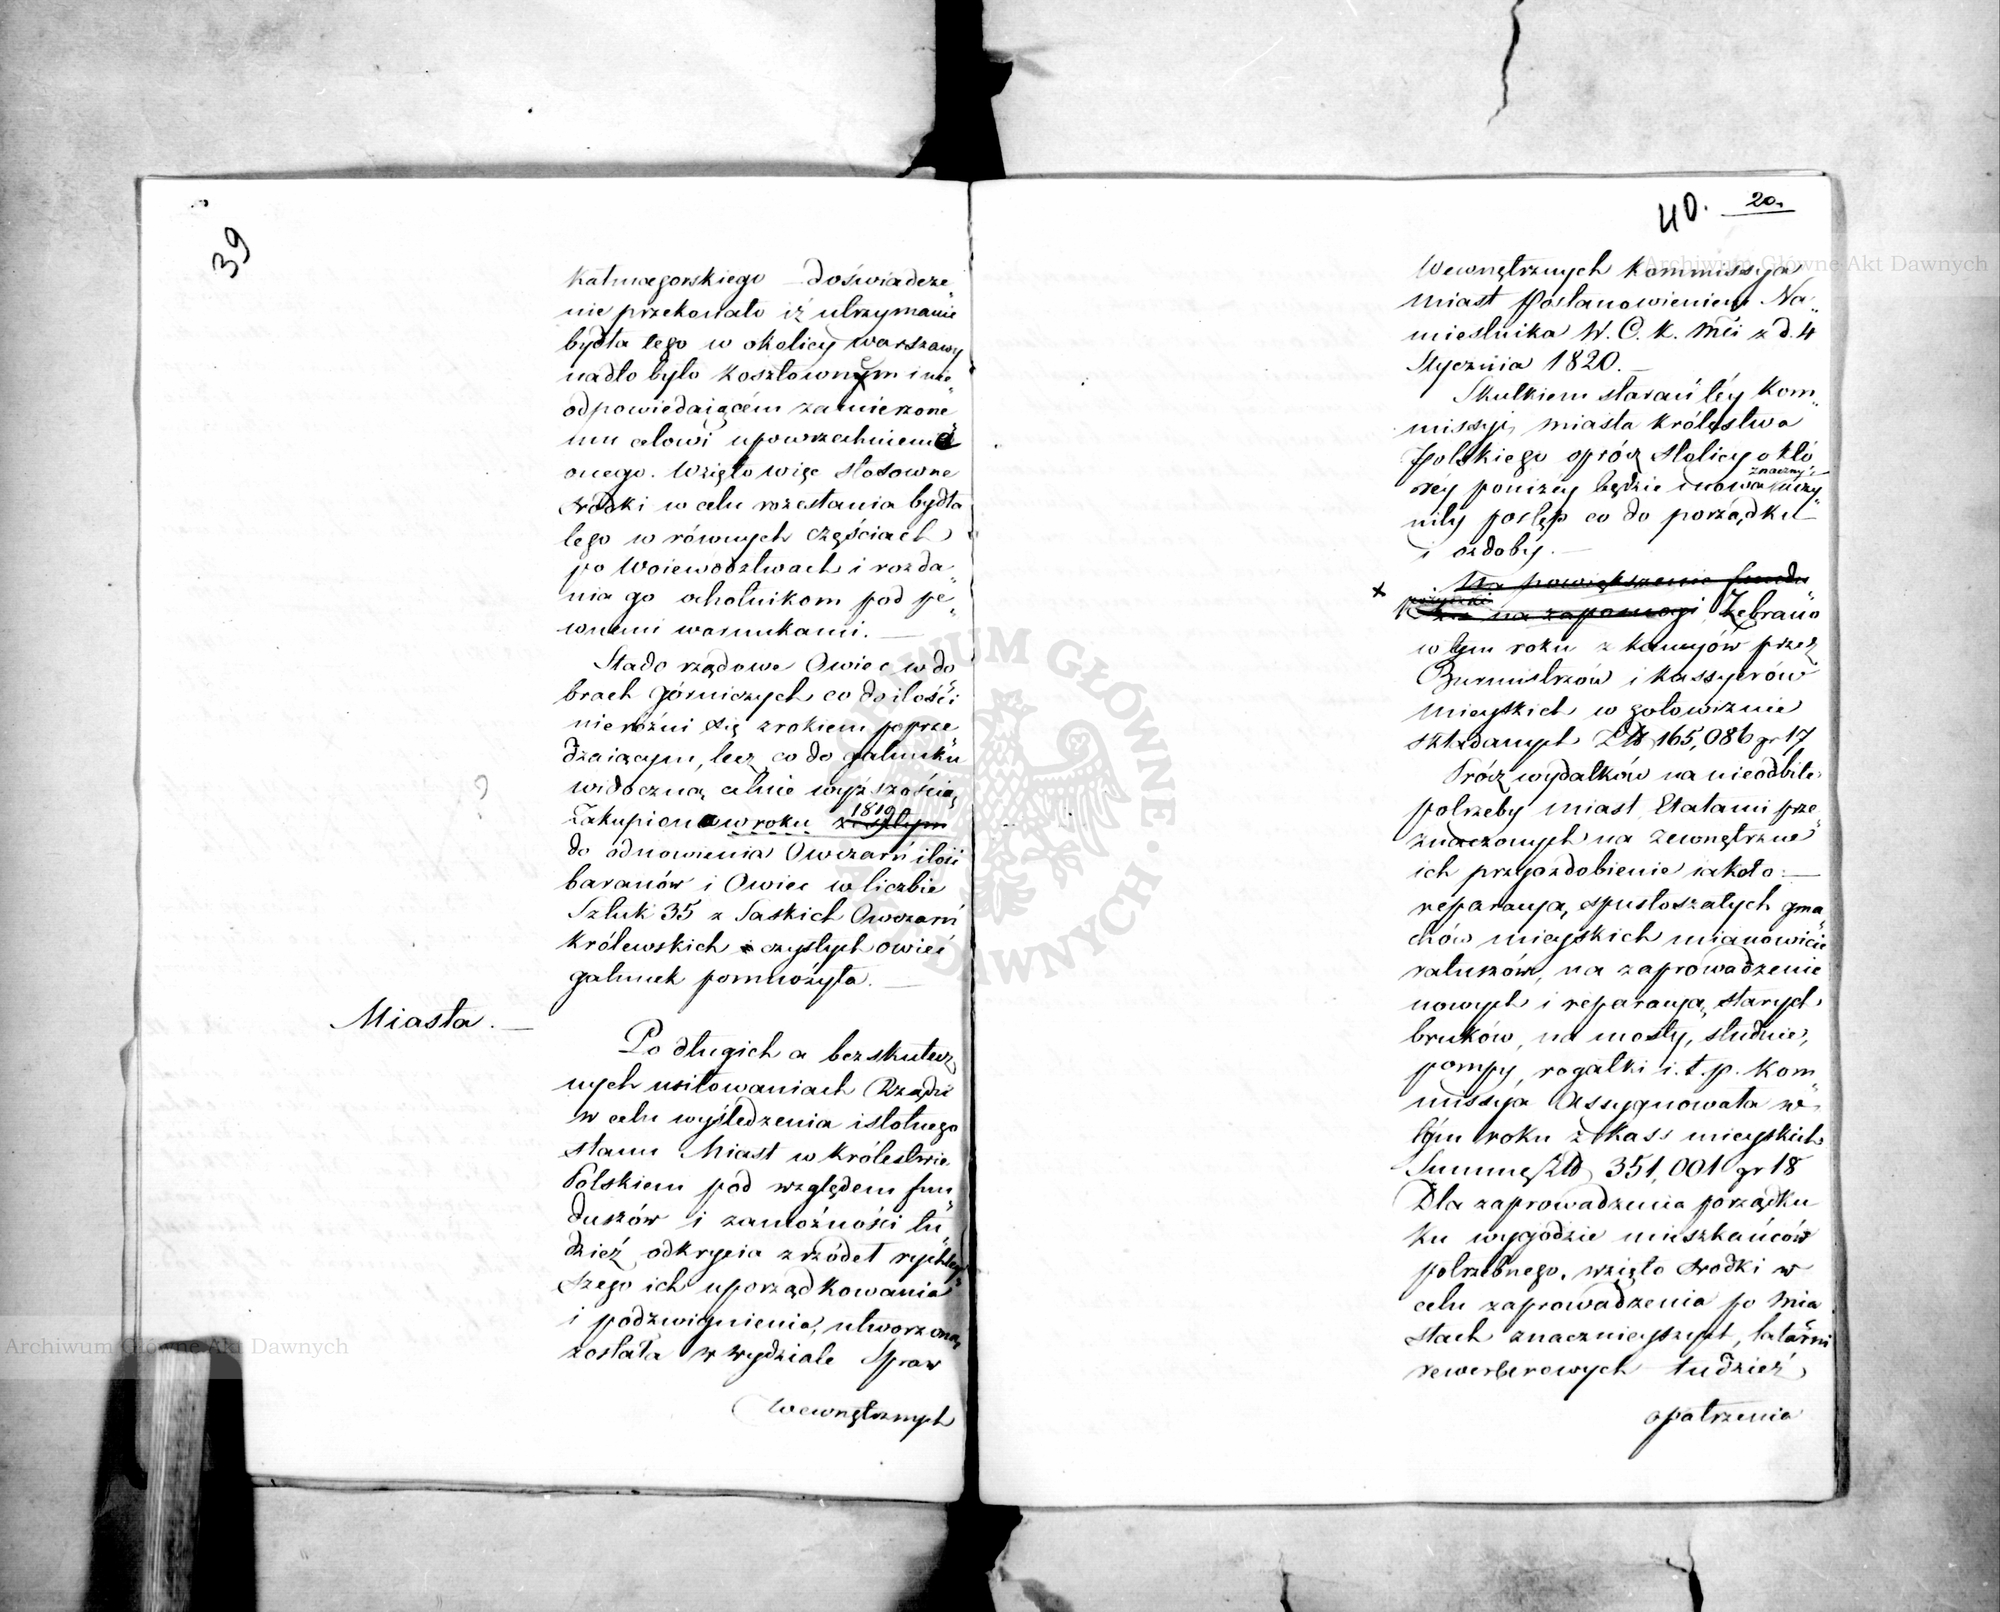 39
Kałmagorskiego – doświadcze„
nie przekonało iż utrzymanie
bydła tego w okolicy Warszawy
nadto było kosztownem i nie„
odpowiedaiącém zamierzone„
mu celowi upowrzechnienia
onego. Wzięto więc stosowne
środki w celu rozesłania bydła
tego w równych częściach
po Woiewództwach i rozda„
nia go ochotnikom pod pe„
wnemi warunkami. —
Stado rządowe Owiec w do„
brach górniczych co do ilości
nie różni się z rokiem poprze„
dzaiącym, lecz co do gatunku
widoczną celnie wyższością,
1819
Zakupiona w roku zeszłym
do odnowienia Owczarń ilość
baranów i Owiec w liczbie
Sztuk 35 z Saskich Owczarń
Królewskich czystych owiec
gatunek pomnożyła. —
Miasta. —
Po długich a bezskutecz„
nych usiłowaniach Rządu
w celu wyśledzenia istotnego
stanu Miast w Królestwie
Polskiem pod względem fun„
duszów i zamożności tu„
dzież odkrycia zrzódeł rychley„
szego ich uporządkowania
i podźwignienia, utworzona
została w Wydziale Spraw
Wewnętrznych
40. 20.
Wewnętrznych Kommissya
Miast Postanowieniem Na„
miestnika N. C. K. Mci z d. 4
Stycznia 1820. —
Skutkiem starań téy Kom„
missyi, miasta Królestwa
Polskiego oprócz Stolicy o któ„
znaczny
réy poniżey będzie mowa uczy„
niły postęp co do porządku
i ozdoby. —
x Na powiększenie fundu
pożyczki
na zapomogi Zebrano
w tym roku z kanonów przez
Burmistrzów i Kassyerów
Mieyskich w gotowiznie
składanych Złt 165,086 gr 17
Prócz wydatków na nieodbite
potrzeby miast Etatami prze„
znaczonych na zewnętrzne
ich przyozdobienie iakoto: —
reparacyą, spustoszałych gma„
chów mieyskich mianowicie
ratuszów, na zaprowadzenie
nowych i reparacyą starych
bruków, na mosty, studnie,
pompy, rogatki i. t. p. Kom„
missya Assygnowała w
tym roku z Kass mieyskich
Summę Złt 351,001 gr 18
Dla zaprowadzenia porządku
ku wygodzie mieszkańców
potrzebnego, wzięto środki w
celu zaprowadzenia po Mia„
stach znacznieyszych, latarni
rewerberowych tudzież
opatrzenia
Archiwum Główne Akt Dawnych
Archiwum Główne Akt Dawnych
ARCHIWUM GŁÓWNE AKT DAWNYCH